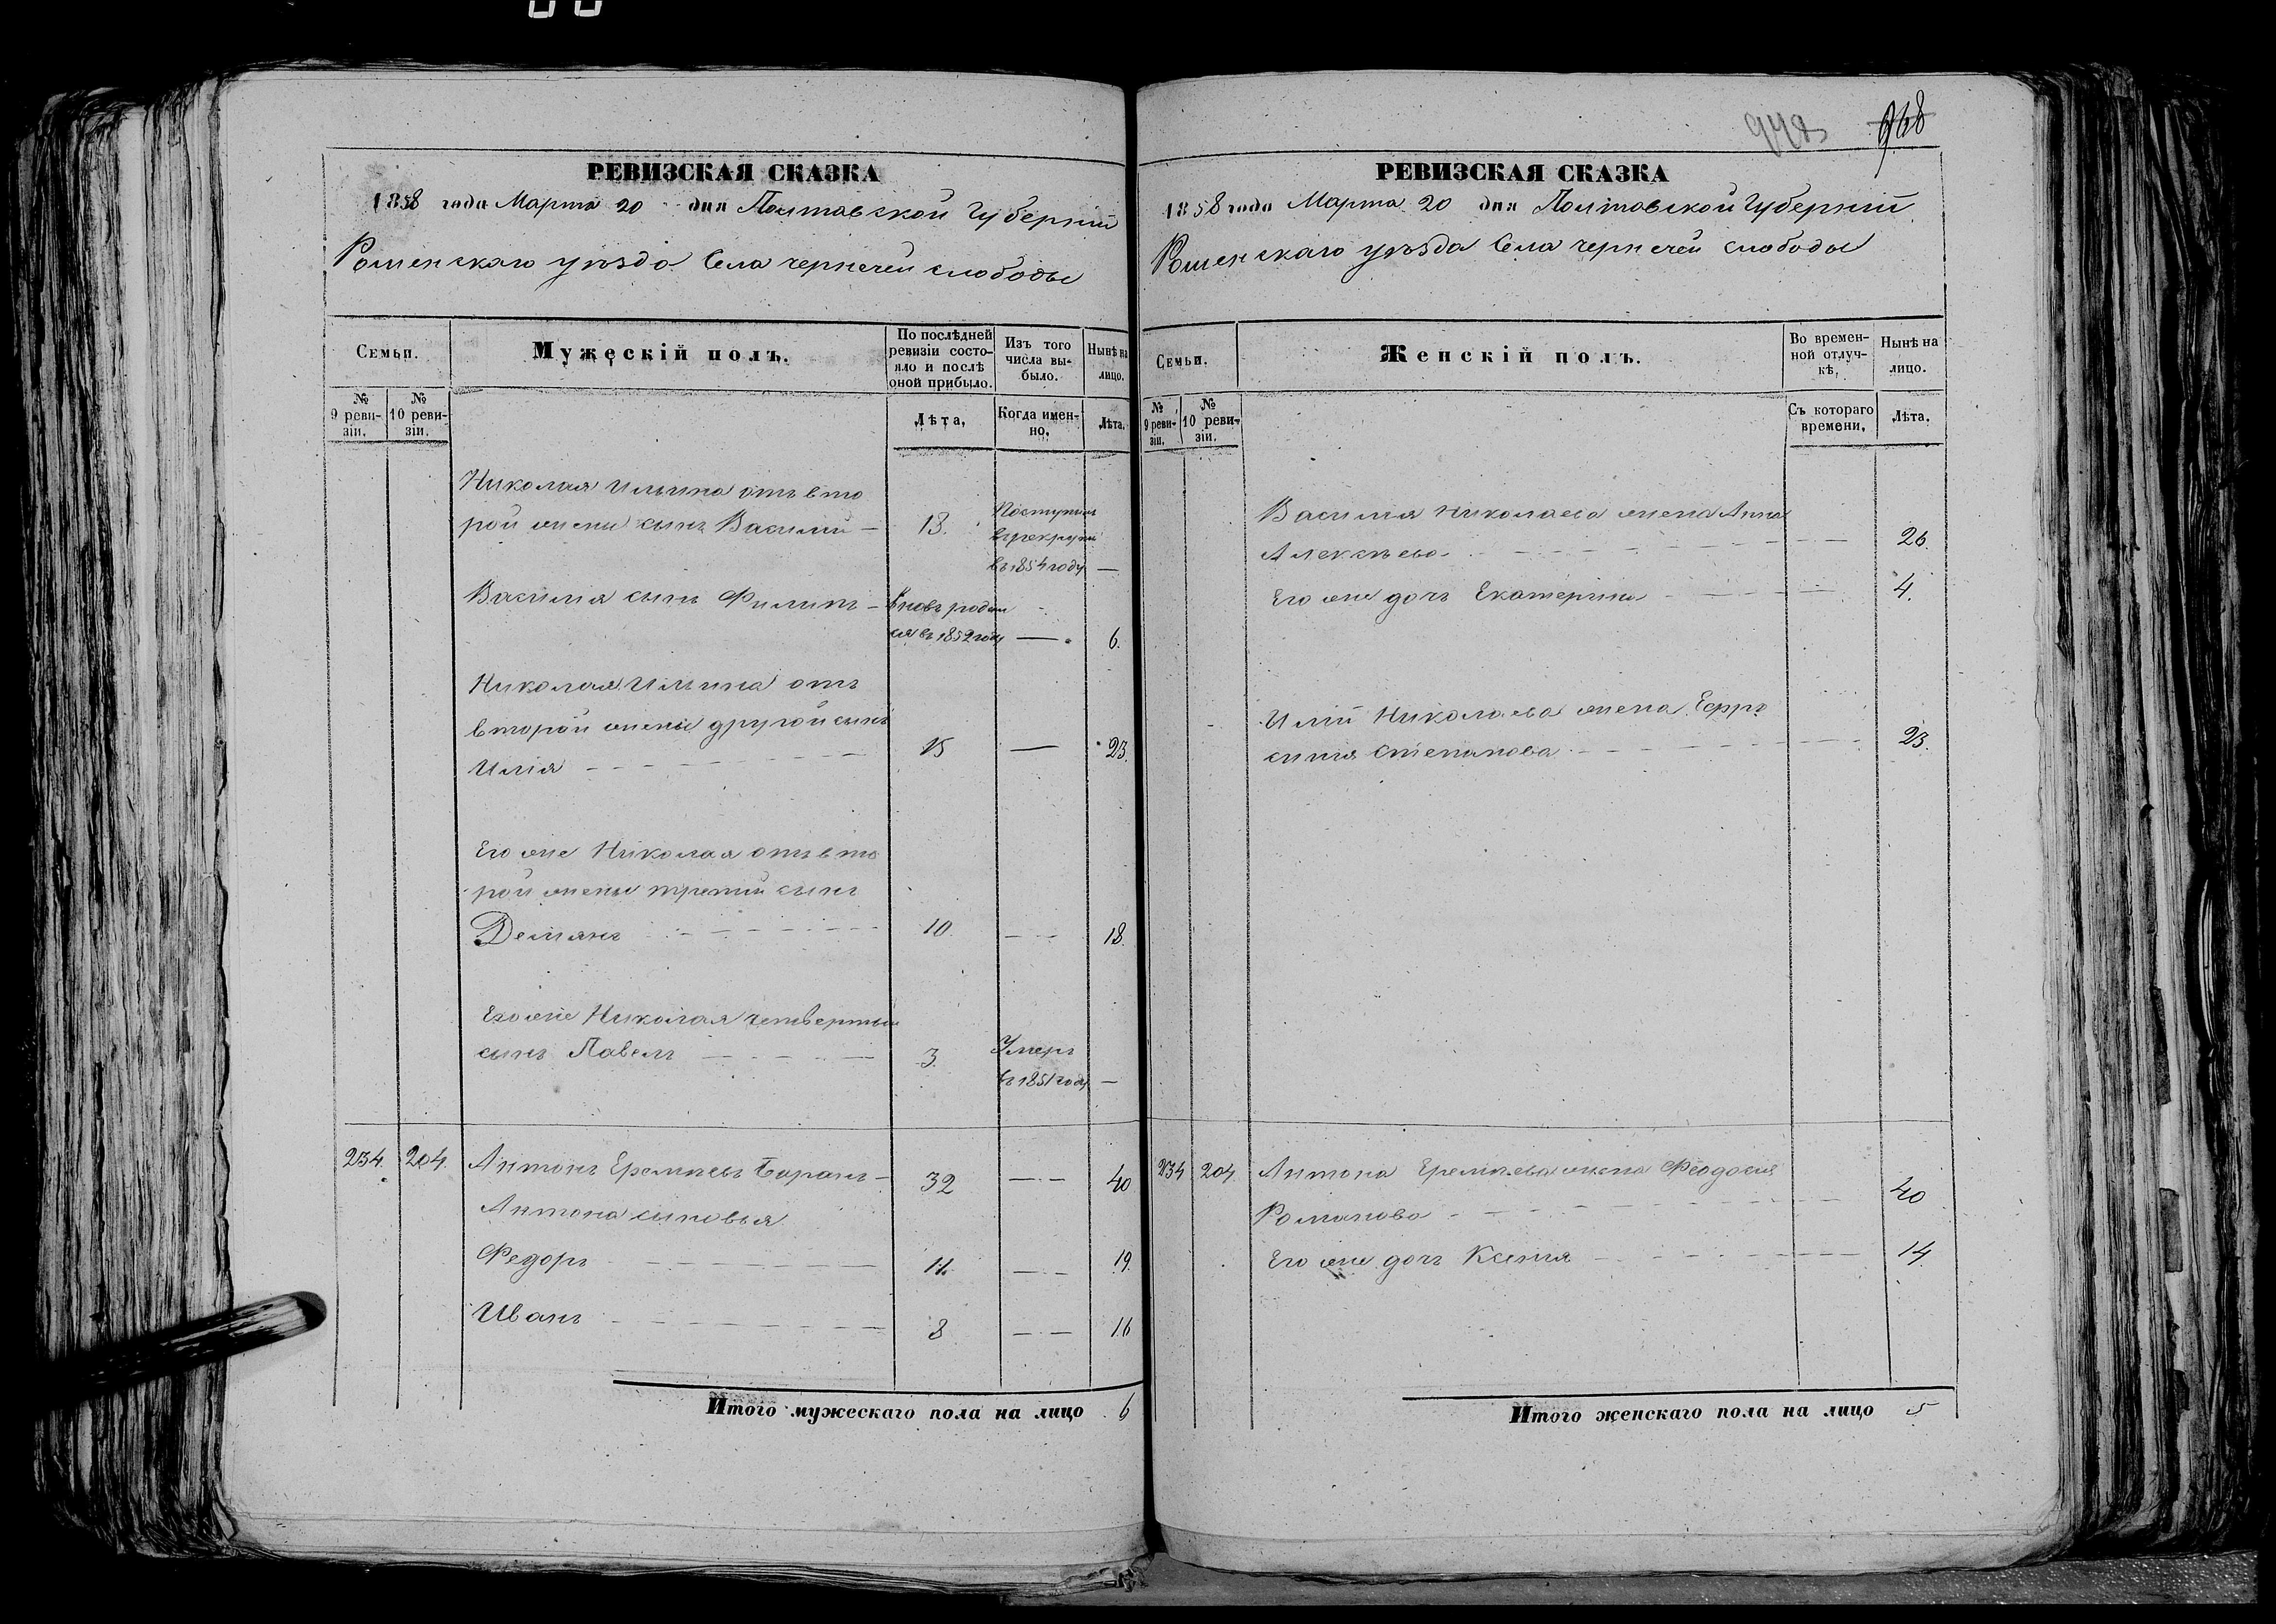 948
968
РЕВИЗСКАЯ СКАЗКА
1858 года Марта 20 дня Полтавской Губерніи
Роменскаго уѣзда Села чернечей слободы
Семьи.
Мужескій полъ.
По послѣдней ревизіи состояло и послѣ оной прибыло.
Изъ того числа выбыло.
Нынѣ на лицо.
№ 9 ревизіи.
№ 10 ревизіи.
Лѣта,
Когда именно.
Лѣта.
Николая Ильина отъ вто
рой жены сынъ Василий — 18. Поступилъ в рекруты въ 1854 году —
Василия сынъ Филипъ — вновь родился въ 1852 году — 6.
Николая Ильина отъ
второй жены другой сынъ
Илія 15 — 23.
Его же Николая отъ вто
рой жены третий сынъ
Демянъ 10 — 18.
Его же Николая четвертый
сынъ Павелъ 3. Умеръ въ 1851 году —
234. 204. Антонъ Еремѣевъ Баранъ — 32 — 40
Антона сыновья
Федоръ 11. — 19.
Иванъ 8 — 16
Итого мужескаго пола на лицо 6
РЕВИЗСКАЯ СКАЗКА
1858 года Марта 20 дня Полтавской Губерніи
Роменскаго уѣзда Села чернечей слободы
Семьи.
Женскій полъ.
Во временной отлучкѣ,
Нынѣ на лицо.
№ 9 ревизіи.
№ 10 ревизіи.
Съ котораго времени,
Лѣта.
Василия Николаева жена Анна
Алексѣева 26.
Его же дочь Екатерина 4.
Иліи Николаева жена Ефро
синия Степанова 23.
234 204. Антона Еремѣева жена Феодосия
Романова 40
Его же дочь Ксения 14.
Итого женскаго пола на лицо 5